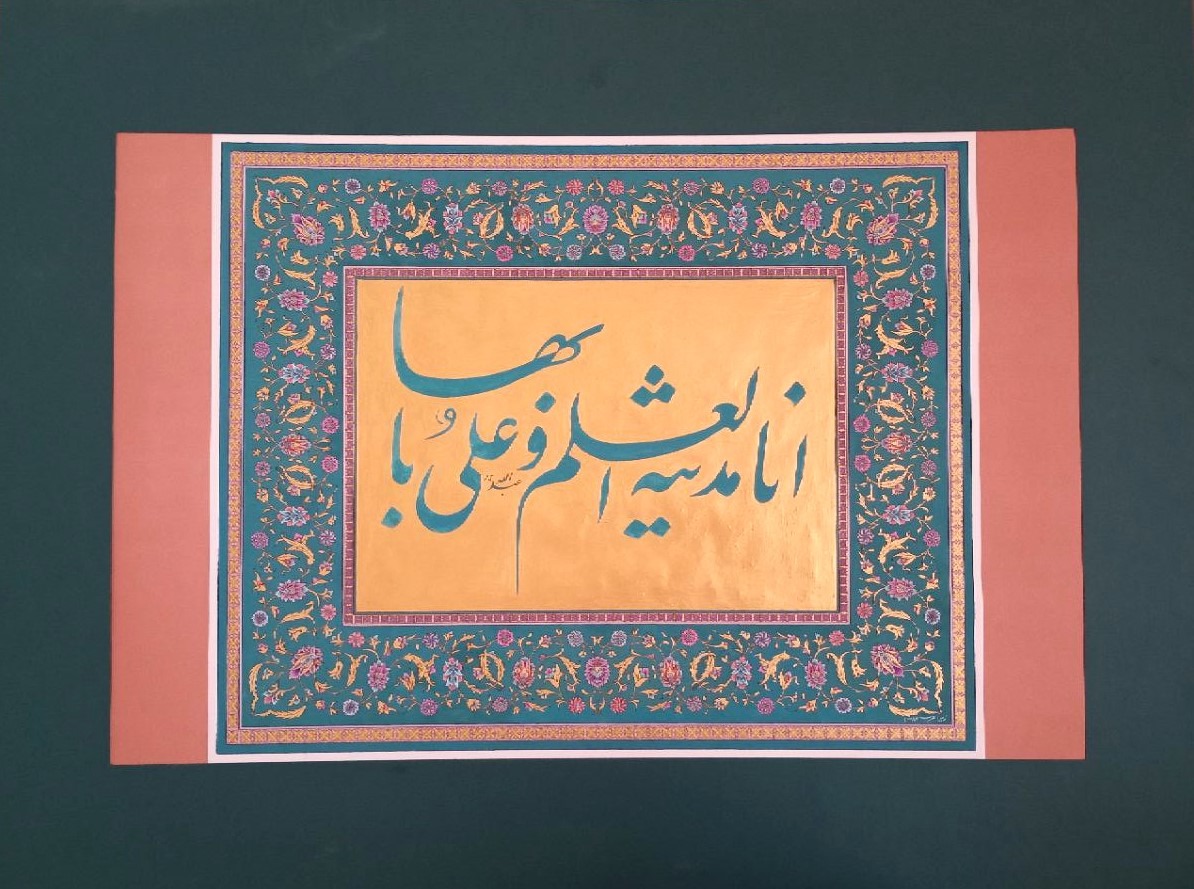 انا مدینة العلم و علیٌ بابها